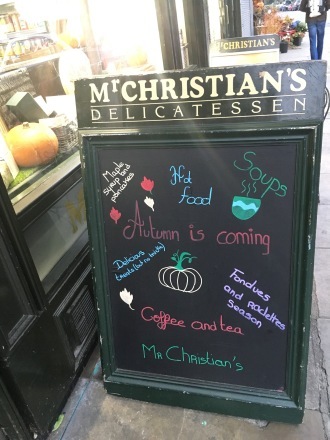 Mr CHRISTIAN'S
Mr CHRISTIAN'S
DELICATESSEN
Maple
syrup and
pancakes
Hot
food
Soups
Autumn is
coming
Delicious
treats (but no tricks)
Fondues
and Raclettes
Season
Coffee and tea
Mr Christian's